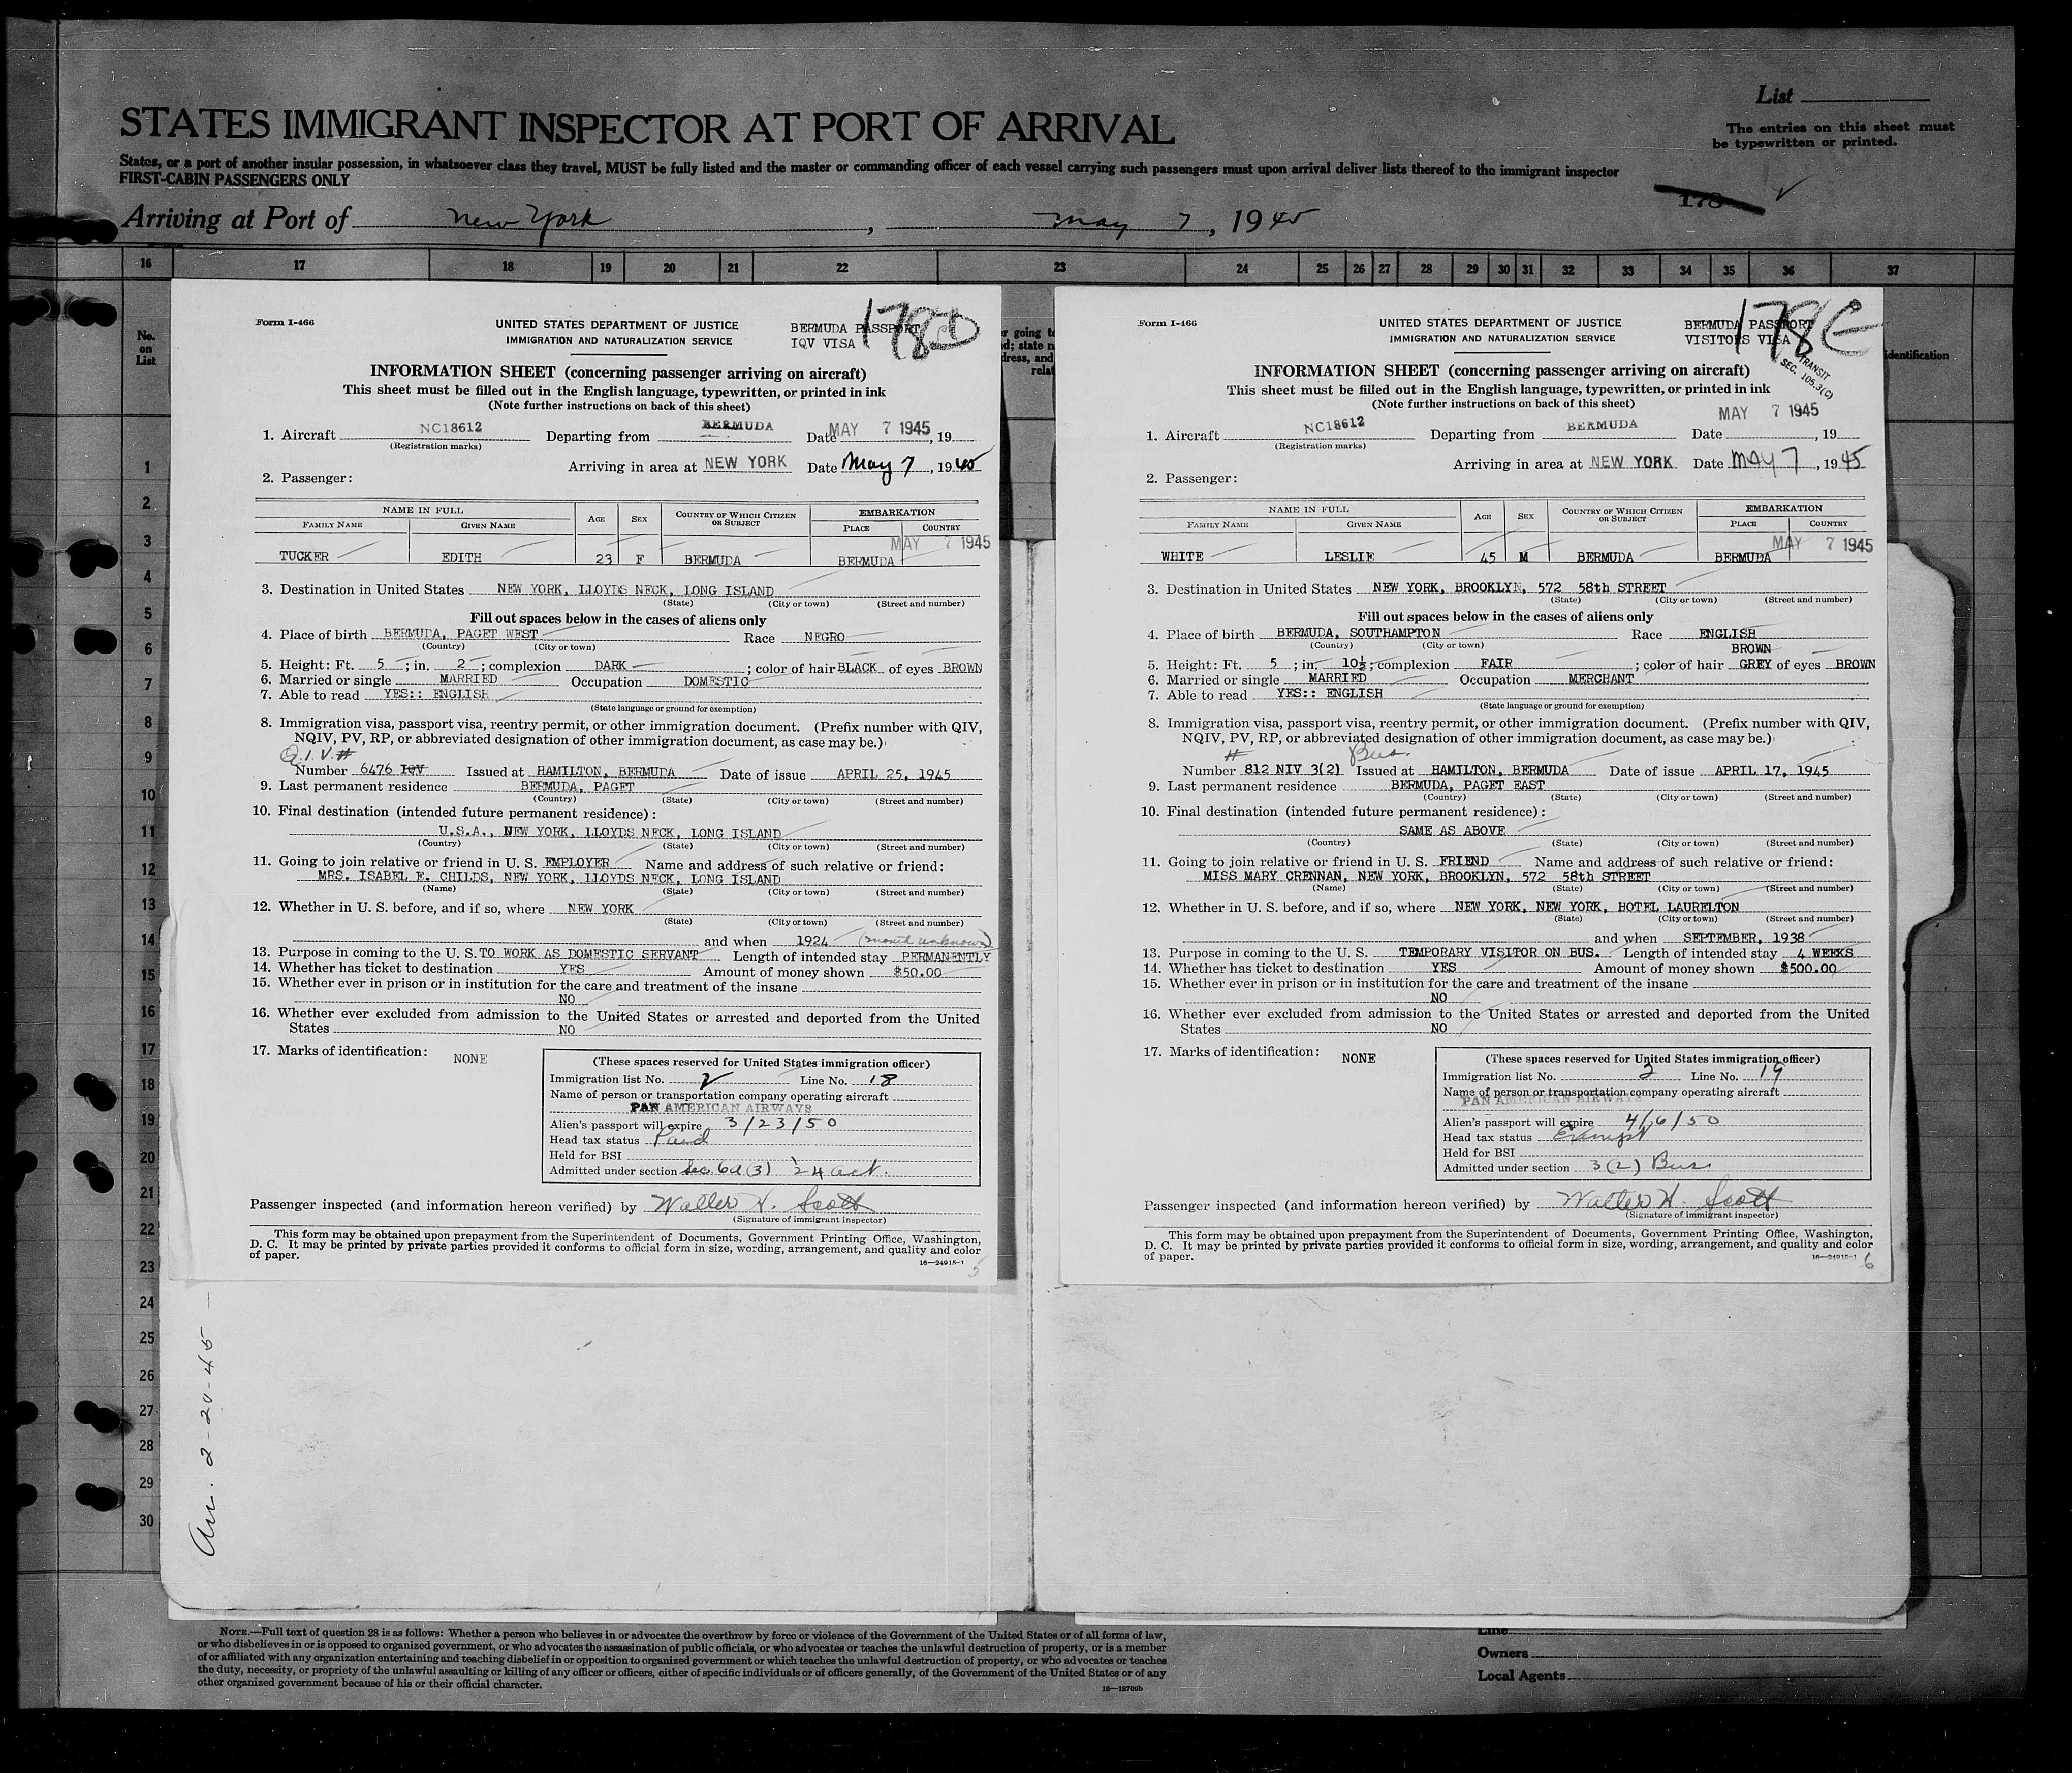 List
STATES IMMIGRANT INSPECTOR AT PORT OF ARRIVAL
The entries on this sheet must
be typewritten or printed.
States, or a port of another insular possession, in whatsoever class they travel, MUST be fully listed and the master or commanding officer of each vessel carrying such passengers must upon arrival deliver lists thereof to the immigrant inspector
FIRST-CABIN PASSENGERS ONLY
178 ✓
Arriving at Port of New York, May 7, 1945
16 17 18 19 20 21 22 23 24 25 26 27 28 29 30 31 32 33 34 35 36 37
No.
on
List
1
2
3
4
5
6
7
8
9
10
11
12
13
14
15
16
17
18
19
20
21
22
23
24
25
26
27
28
29
30
Form I-466
UNITED STATES DEPARTMENT OF JUSTICE
IMMIGRATION AND NATURALIZATION SERVICE
BERMUDA PASSPORT
IQV VISA
178D
INFORMATION SHEET (concerning passenger arriving on aircraft)
This sheet must be filled out in the English language, typewritten, or printed in ink
(Note further instructions on back of this sheet)
1. Aircraft NC18612 Departing from BERMUDA Date MAY 7 1945, 19
(Registration marks)
Arriving in area at NEW YORK Date May 7, 1945
2. Passenger:
NAME IN FULL
FAMILY NAME GIVEN NAME AGE SEX COUNTRY OF WHICH CITIZEN OR SUBJECT EMBARKATION
PLACE COUNTRY
MAY 7 1945
TUCKER EDITH 23 F BERMUDA BERMUDA
3. Destination in United States NEW YORK, LLOYDS NECK, LONG ISLAND
(State) (City or town) (Street and number)
Fill out spaces below in the cases of aliens only
4. Place of birth BERMUDA, PAGET WEST Race NEGRO
(Country) (City or town)
5. Height: Ft. 5; in. 2; complexion DARK; color of hair BLACK of eyes BROWN
6. Married or single MARRIED Occupation DOMESTIC
7. Able to read YES:: ENGLISH
(State language or ground for exemption)
8. Immigration visa, passport visa, reentry permit, or other immigration document. (Prefix number with QIV,
NQIV, PV, RP, or abbreviated designation of other immigration document, as case may be.)
Q.I.V.#
Number 6476 IQV Issued at HAMILTON, BERMUDA Date of issue APRIL 25, 1945
9. Last permanent residence BERMUDA, PAGET
(Country) (State) (City or town) (Street and number)
10. Final destination (intended future permanent residence):
U.S.A., NEW YORK, LLOYDS NECK, LONG ISLAND
(Country) (State) (City or town) (Street and number)
11. Going to join relative or friend in U. S. EMPLOYER Name and address of such relative or friend:
MRS. ISABEL E. CHILDS, NEW YORK, LLOYDS NECK, LONG ISLAND
(Name) (State) (City or town) (Street and number)
12. Whether in U. S. before, and if so, where NEW YORK
(State) (City or town) (Street and number)
and when 1924 (month unknown)
13. Purpose in coming to the U. S. TO WORK AS DOMESTIC SERVANT Length of intended stay PERMANENTLY
14. Whether has ticket to destination YES Amount of money shown $50.00
15. Whether ever in prison or in institution for the care and treatment of the insane
NO
16. Whether ever excluded from admission to the United States or arrested and deported from the United
States NO
17. Marks of identification: NONE
(These spaces reserved for United States immigration officer)
Immigration list No. 2 Line No. 18
Name of person or transportation company operating aircraft
PAN AMERICAN AIRWAYS
Alien's passport will expire 3/23/50
Head tax status Paid
Held for BSI
Admitted under section Sec 6a(3) '24 act.
Passenger inspected (and information hereon verified) by Walter H. Scott
(Signature of immigrant inspector)
This form may be obtained upon prepayment from the Superintendent of Documents, Government Printing Office, Washington,
D. C. It may be printed by private parties provided it conforms to official form in size, wording, arrangement, and quality and color
of paper.
16—24915-1
5
r going to
d; state n
dress, and
relat
Form I-466
UNITED STATES DEPARTMENT OF JUSTICE
IMMIGRATION AND NATURALIZATION SERVICE
BERMUDA PASSPORT
VISITORS VISA
178E
TRANSIT
SEC. 105.3(C)
identification
INFORMATION SHEET (concerning passenger arriving on aircraft)
This sheet must be filled out in the English language, typewritten, or printed in ink
(Note further instructions on back of this sheet)
MAY 7 1945
1. Aircraft NC18612 Departing from BERMUDA Date , 19
(Registration marks)
Arriving in area at NEW YORK Date MAY 7, 1945
2. Passenger:
NAME IN FULL
FAMILY NAME GIVEN NAME AGE SEX COUNTRY OF WHICH CITIZEN OR SUBJECT EMBARKATION
PLACE COUNTRY
MAY 7 1945
WHITE LESLIE 45 M BERMUDA BERMUDA
3. Destination in United States NEW YORK, BROOKLYN, 572 58th STREET
(State) (City or town) (Street and number)
Fill out spaces below in the cases of aliens only
4. Place of birth BERMUDA, SOUTHAMPTON Race ENGLISH
(Country) (City or town)
BROWN
5. Height: Ft. 5; in. 10½; complexion FAIR; color of hair GREY of eyes BROWN
6. Married or single MARRIED Occupation MERCHANT
7. Able to read YES:: ENGLISH
(State language or ground for exemption)
8. Immigration visa, passport visa, reentry permit, or other immigration document. (Prefix number with QIV,
NQIV, PV, RP, or abbreviated designation of other immigration document, as case may be.)
# Bus.
Number 812 NIV 3(2) Issued at HAMILTON, BERMUDA Date of issue APRIL 17, 1945
9. Last permanent residence BERMUDA, PAGET EAST
(Country) (State) (City or town) (Street and number)
10. Final destination (intended future permanent residence):
SAME AS ABOVE
(Country) (State) (City or town) (Street and number)
11. Going to join relative or friend in U. S. FRIEND Name and address of such relative or friend:
MISS MARY CRENNAN, NEW YORK, BROOKLYN, 572 58th STREET
(Name) (State) (City or town) (Street and number)
12. Whether in U. S. before, and if so, where NEW YORK, NEW YORK, HOTEL LAURELTON
(State) (City or town) (Street and number)
and when SEPTEMBER, 1938
13. Purpose in coming to the U. S. TEMPORARY VISITOR ON BUS. Length of intended stay 4 WEEKS
14. Whether has ticket to destination YES Amount of money shown $500.00
15. Whether ever in prison or in institution for the care and treatment of the insane
NO
16. Whether ever excluded from admission to the United States or arrested and deported from the United
States NO
17. Marks of identification: NONE
(These spaces reserved for United States immigration officer)
Immigration list No. 2 Line No. 19
Name of person or transportation company operating aircraft
PAN AMERICAN AIRWAYS
Alien's passport will expire 4/6/50
Head tax status Exempt
Held for BSI
Admitted under section 3(2) Bus.
Passenger inspected (and information hereon verified) by Walter H. Scott
(Signature of immigrant inspector)
This form may be obtained upon prepayment from the Superintendent of Documents, Government Printing Office, Washington,
D. C. It may be printed by private parties provided it conforms to official form in size, wording, arrangement, and quality and color
of paper.
16—24915-1
6
2-20-45
NOTE.—Full text of question 28 is as follows: Whether a person who believes in or advocates the overthrow by force or violence of the Government of the United States or of all forms of law,
or who disbelieves in or is opposed to organized government, or who advocates the assassination of public officials, or who advocates or teaches the unlawful destruction of property, or is a member
of or affiliated with any organization entertaining and teaching disbelief in or opposition to organized government or which teaches the unlawful destruction of property, or who advocates or teaches
the duty, necessity, or propriety of the unlawful assaulting or killing of any officer or officers, either of specific individuals or of officers generally, of the Government of the United States or of any
other organized government because of his or their official character.
16—18709b
Line
Owners
Local Agents